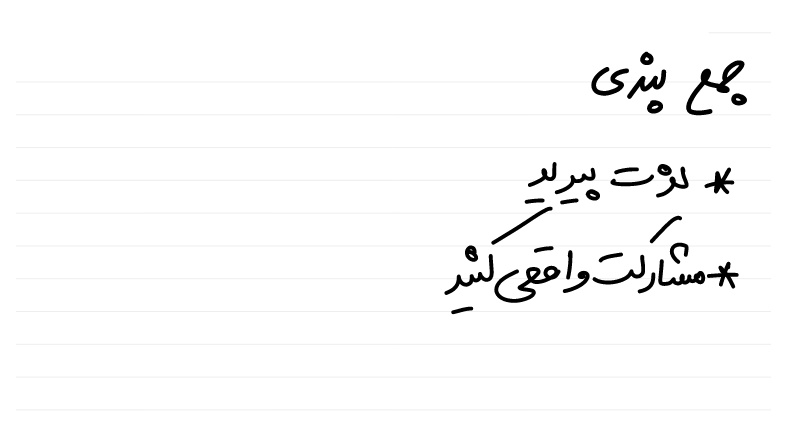 جمع بندی
* لذت ببرید
* مشارکت واقعی کنید